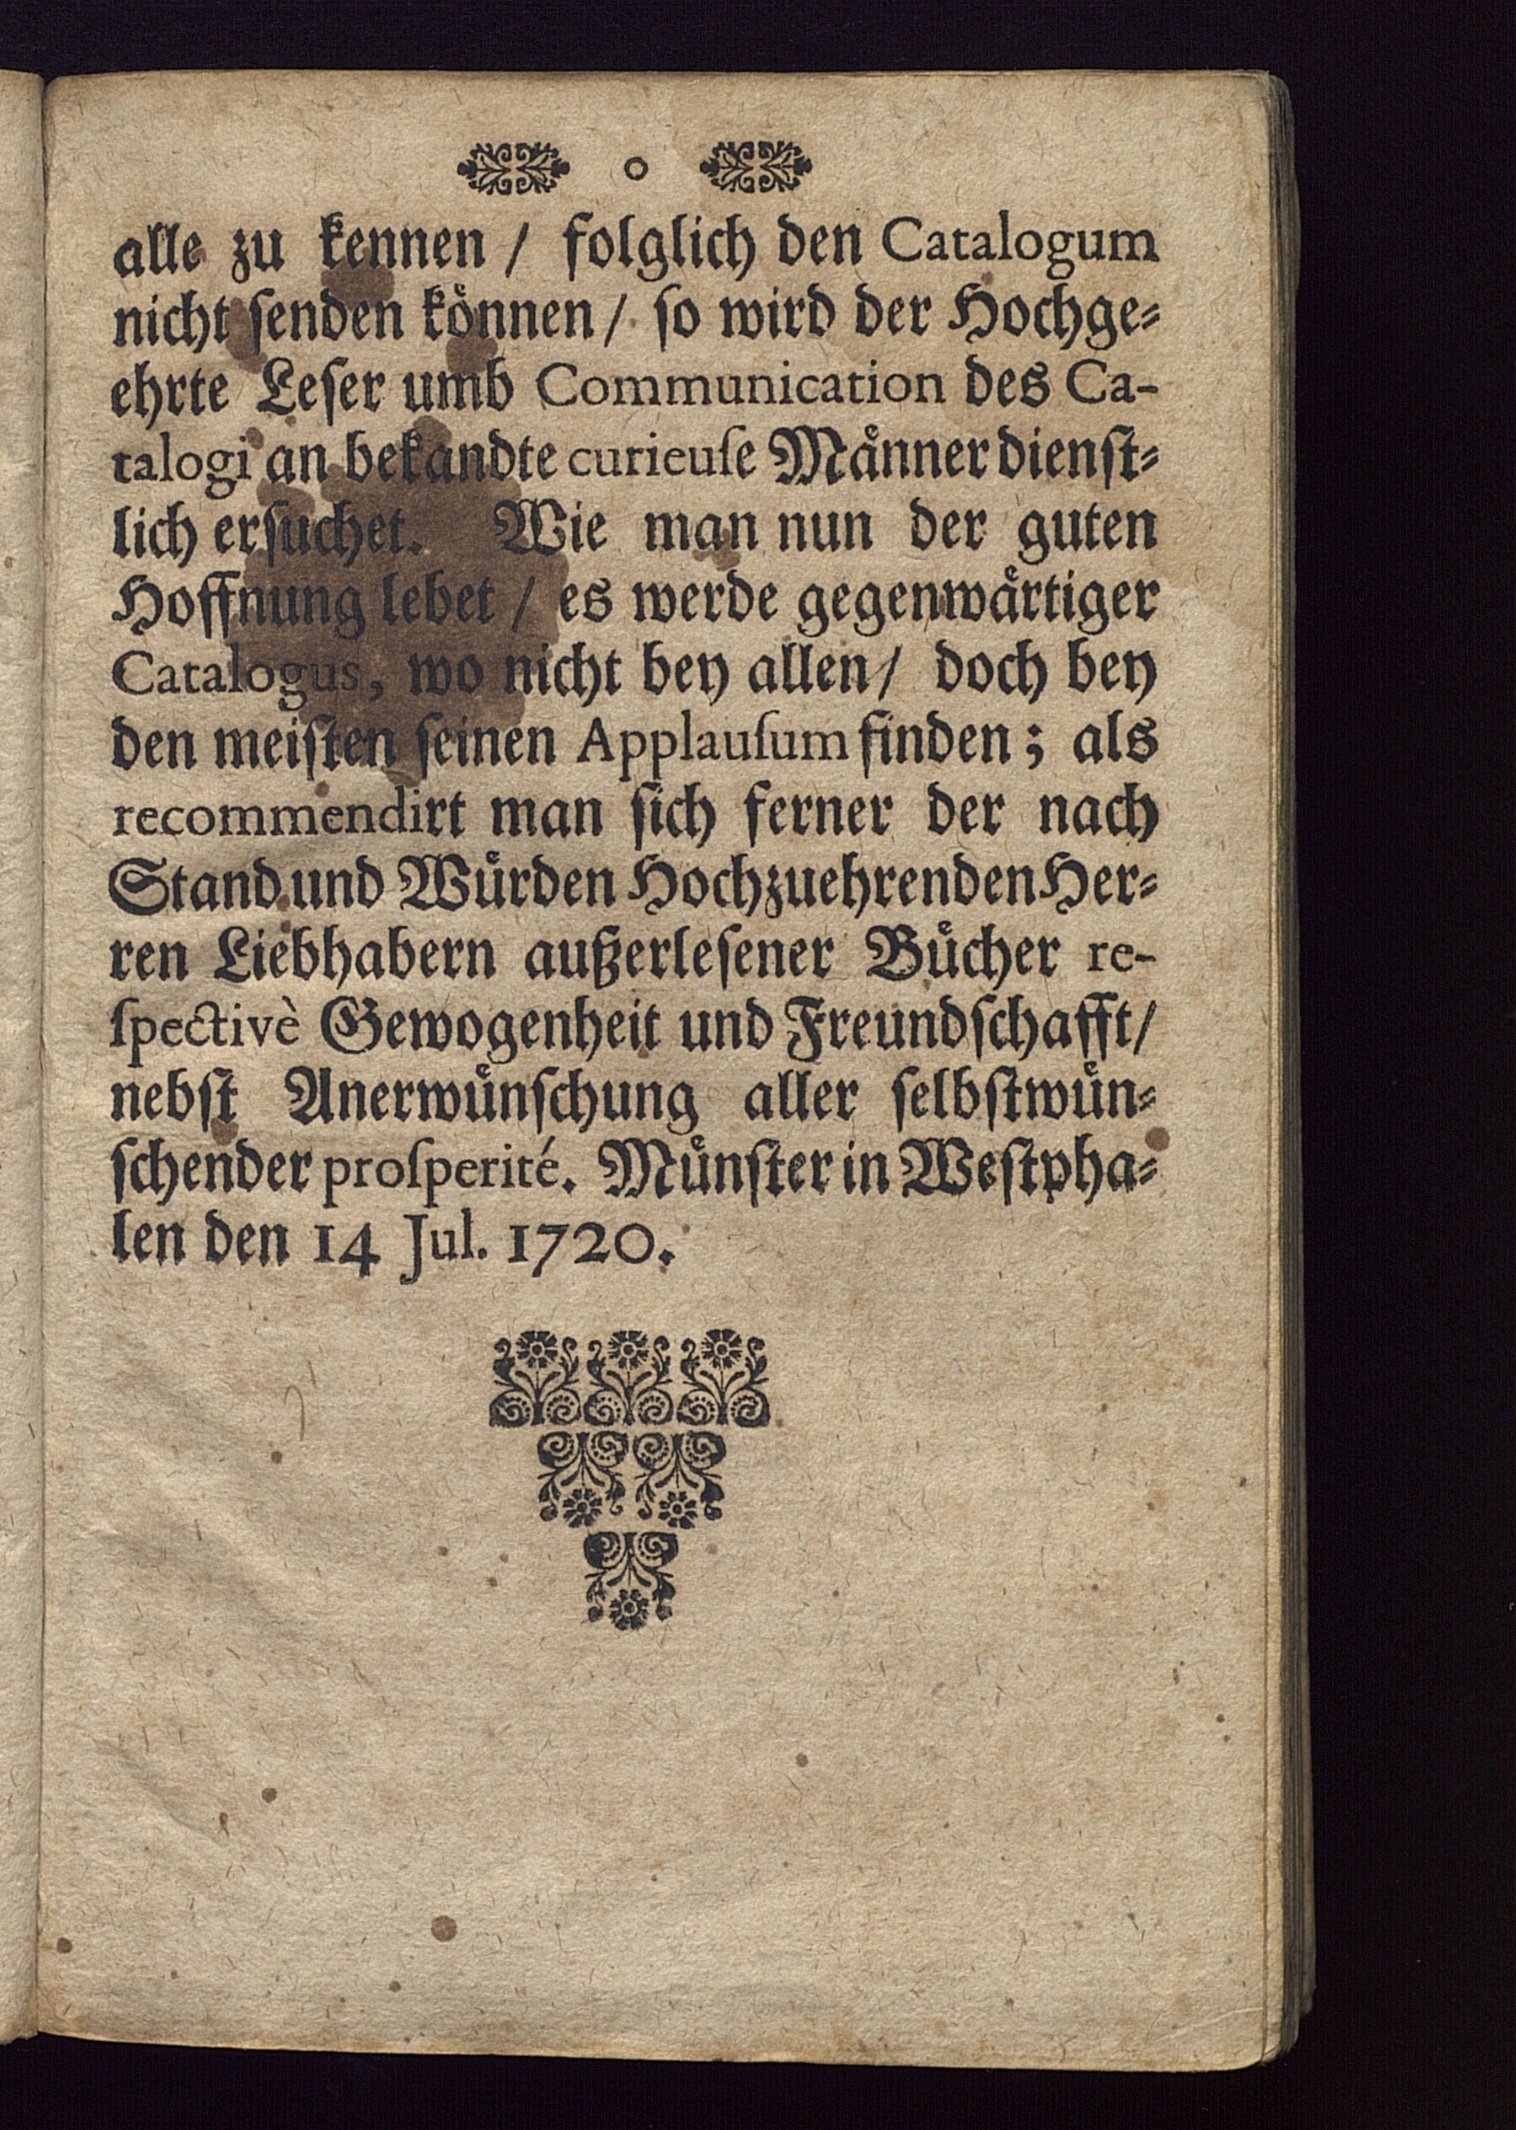 alle zu kennen / folglich den Catalogum
nicht ſenden koͤnnen / ſo wird der Hochge⸗
ehrte Leſer umb Communication des Ca-
talogi an bekandte curieuſe Maͤnner dienſt⸗
lich erſuchet. Wie man nun der guten
Hoffnung lebet / es werde gegenwaͤrtiger
Catalogus, wo nicht bey allen / doch bey
den meiſten ſeinen Applauſum finden; als
recommendirt man ſich ferner der nach
Stand und Wuͤrden Hochzuehrenden Her⸗
ren Liebhabern außerleſener Buͤcher re-
ſpectivè Gewogenheit und Freundſchafft /
nebſt Anerwuͤnſchung aller ſelbſtwuͤn⸗
ſchender proſperité. Muͤnſter in Weſtpha⸗
len den 14 Jul. 1720.